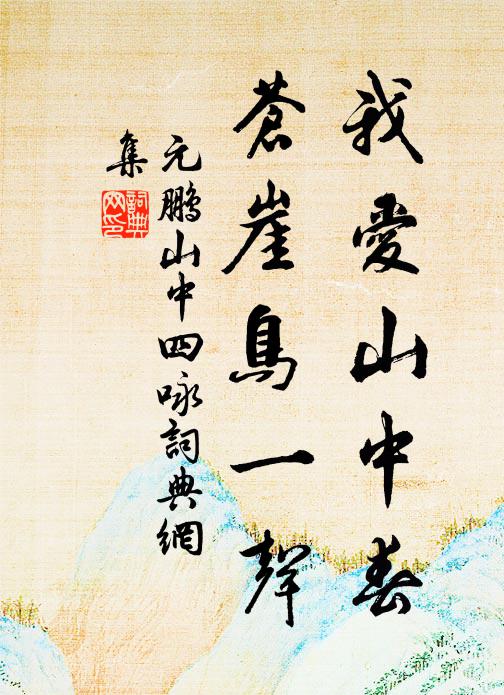 我愛山中春
蒼崖鳥一聲
元鵬山中四咏詞典網
集
詞典
网印